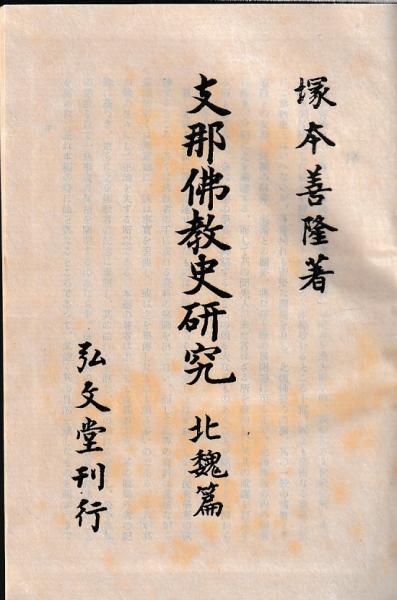 塚本善隆著
支那佛教史研究 北魏篇
弘文堂刊行